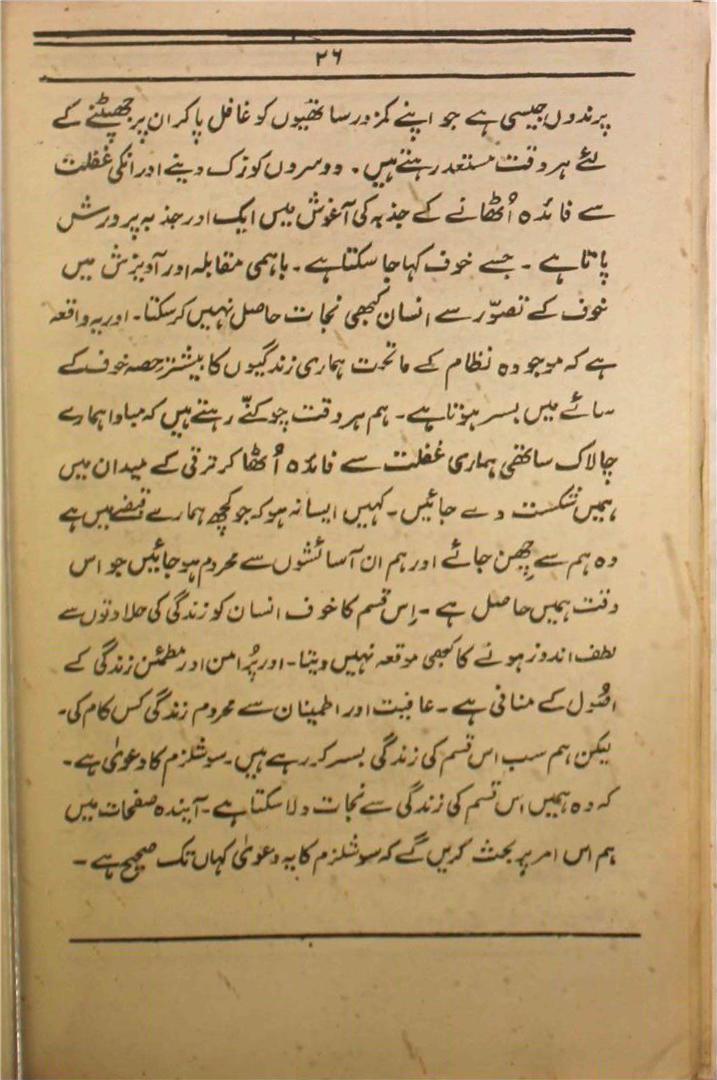 ۲۶
پرندوں جیسی ہے جو اپنے کمزور ساتھیوں کو غافل پاکر ان پر جھپٹنے کے
لئے ہر وقت مستعد رہتے ہیں۔ دوسروں کو زک دینے اور انکی غفلت
سے فائدہ اُٹھانے کے جذبہ کی آغوش میں ایک اور جذبہ پرورش
پاتا ہے ۔ جسے خوف کہا جا سکتا ہے ۔ باہمی مقابلہ اور آویزش میں
خوف کے تصوّر سے انسان کبھی نجات حاصل نہیں کر سکتا۔ اور یہ واقعہ
ہے کہ موجودہ نظام کے ماتحت ہماری زندگیوں کا بیشتر حصہ خوف کے
سائے میں بسر ہوتا ہے۔ ہم ہر وقت چوکنّے رہتے ہیں کہ مبادا ہمارے
چالاک ساتھی ہماری غفلت سے فائدہ اُٹھا کر ترقی کے میدان میں
ہمیں شکست دے جائیں۔ کہیں ایسا نہ ہو کہ جو کچھ ہمارے قبضے میں ہے
وہ ہم سے چھِن جائے اور ہم ان آسائشوں سے محروم ہو جائیں جو اس
وقت ہمیں حاصل ہے ۔ اِس قسم کا خوف انسان کو زندگی کی حلاوتوں سے
لطف اندوز ہونے کا کبھی موقعہ نہیں دیتا۔ اور پُر امن اور مطمئن زندگی کے
اصُول کے منافی ہے ۔ عافیت اور اطمینان سے محروم زندگی کس کام کی۔
لیکن ہم سب اس قسم کی زندگی بسر کر رہے ہیں۔ سوشلزم کا دعویٰ ہے۔
کہ وہ ہمیں اس قسم کی زندگی سے نجات دلا سکتا ہے ۔ آیندہ صفحات میں
ہم اس امر پر بحث کریں گے کہ سوشلزم کا یہ دعویٰ کہاں تک صحیح ہے ۔